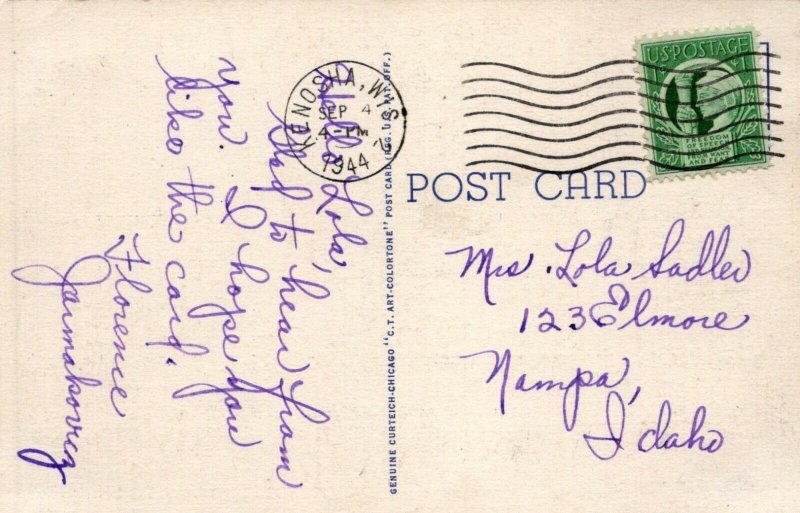 Hello Lola,
Glad to hear from
you. I hope you
like the card.
Florence
Jarmakovicz
KENOSHA, WIS.
SEP 4
4-PM
1944
GENUINE CURTEICH-CHICAGO "C.T. ART-COLORTONE" POST CARD (REG. U.S. PAT. OFF.)
U.S. POSTAGE
FREEDOM
OF SPEECH
AND RELIGION
FROM WANT
AND FEAR
POST CARD
Mrs. Lola Sadler
123 Elmore
Nampa,
Idaho